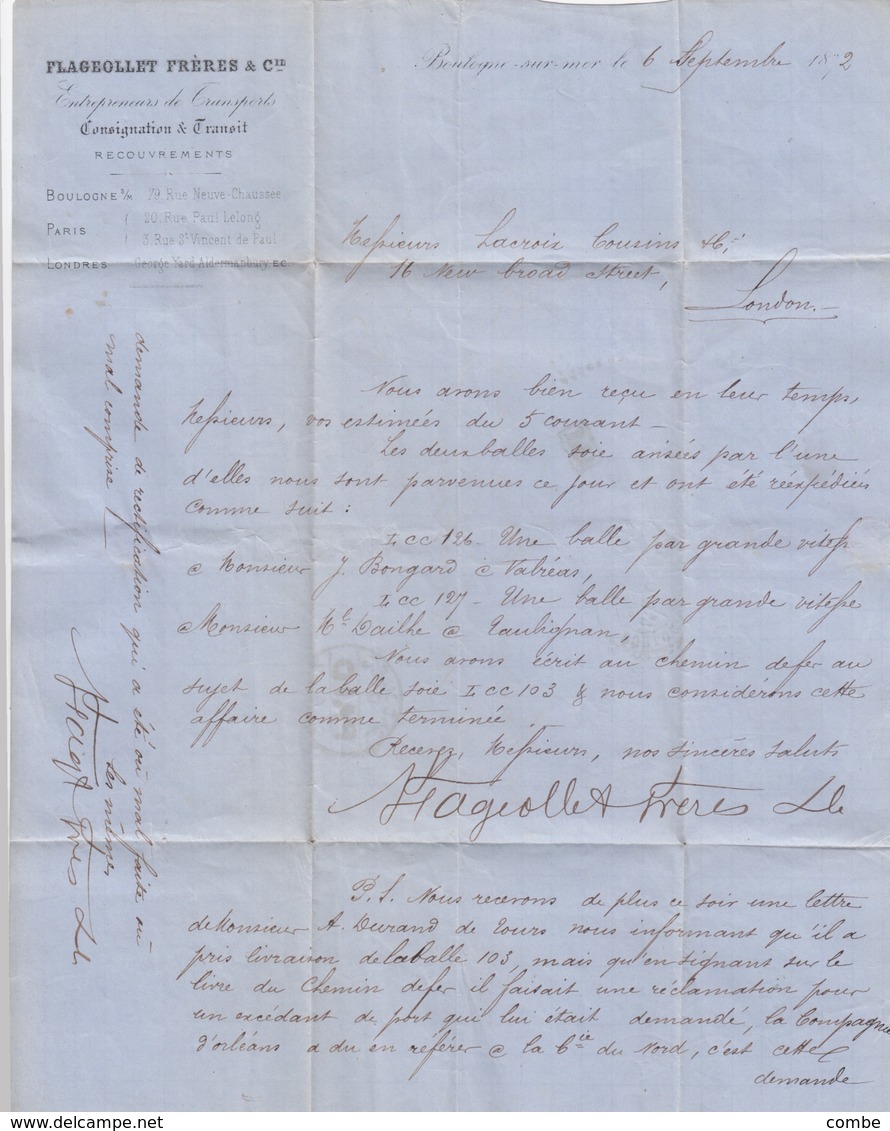 FLAGEOLLET FRÈRES & Cie
Entrepreneurs de Transports
Consignation & Transit
RECOUVREMENTS
BOULOGNE S/M 79 Rue Neuve-Chaussée
PARIS 20 Rue Paul Lelong
3, Rue St Vincent de Paul
LONDRES George Yard Aldermanbury, EC.
Boulogne-sur-mer le 6 Septembre 1872
Messieurs Lacroix Cousins & Cie
16 New broad Street,
London.
Nous avons bien reçu en leur temps,
Messieurs, vos estimées du 5 courant _
Les deux balles soie avisées par l'une
d'elles nous sont parvenues ce jour et ont été réexpédiées
comme suit :
L CC 126 - Une balle par grande vitesse
a Monsieur J. Bongard a Valréas,
L CC 127 - Une balle par grande vitesse
a Monsieur Dailhe a Taulignan,
Nous avons écrit au chemin de fer au
sujet de la balle soie L CC 103 & nous considérons cette
affaire comme terminée.
Recevez, Messieurs, nos sincères saluts
Flageollet Frères
P.S. Nous recevons de plus ce soir une lettre
de Monsieur A. Durand de Tours nous informant qu'il a
pris livraison de la balle 103, mais qu'en signant sur le
livre du Chemin de fer il faisait une réclamation pour
un excédant de port qui lui était demandé, la Compagnie
d'orléans a du en référer a la Cie du Nord, c'est cette
demande
demande de rectification qui a été ou mal faite ou
mal comprise /.
Les mêmes
Flagt Fres
combe